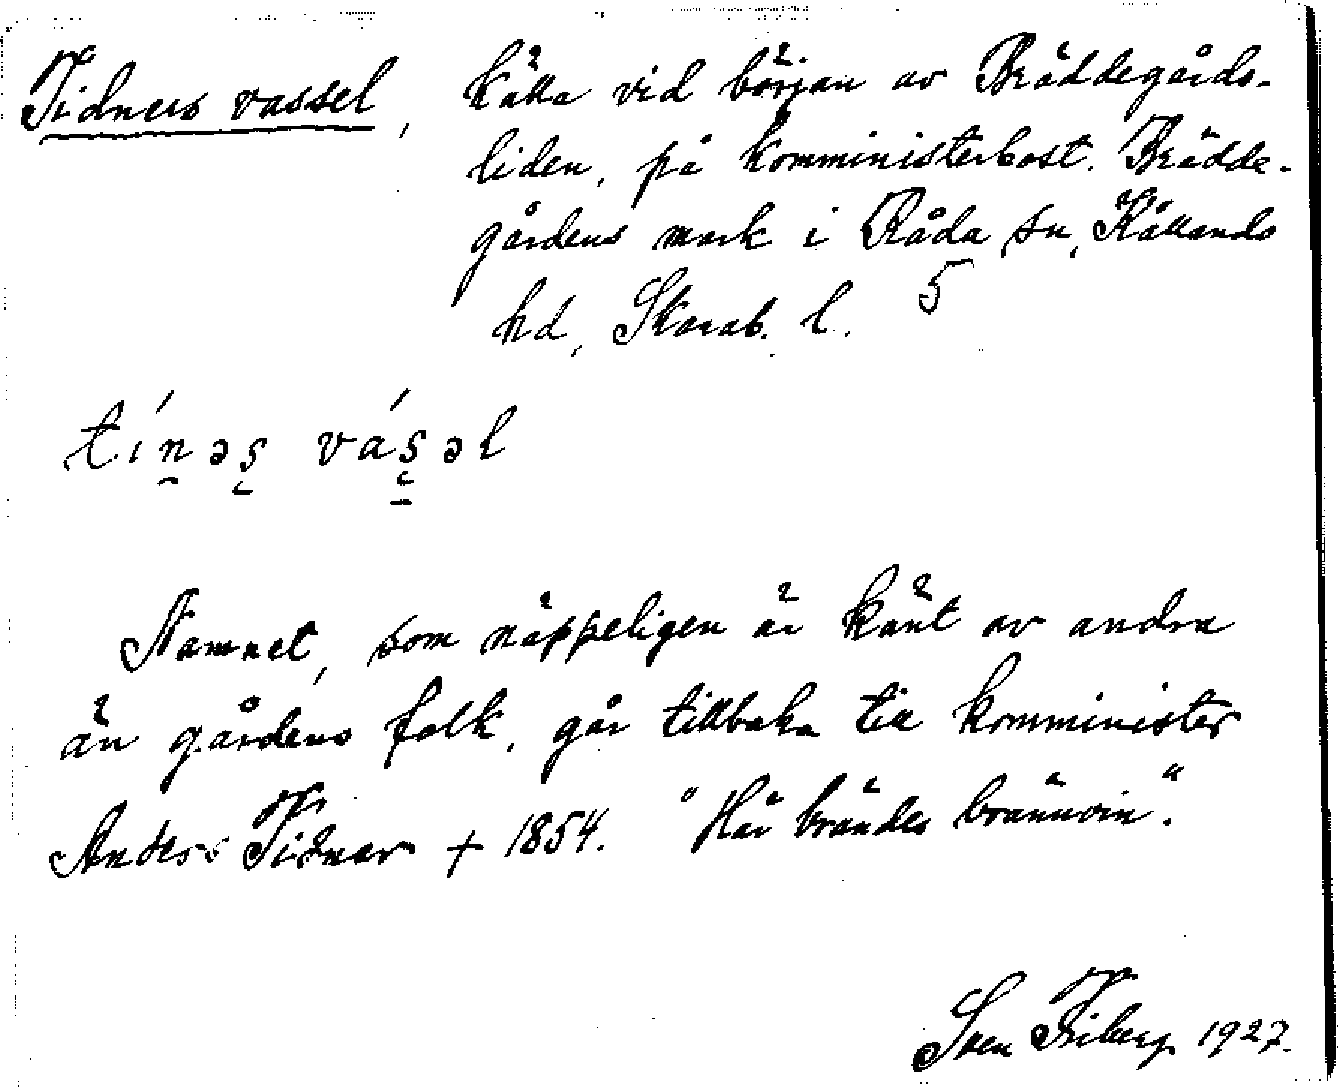 Tidners vassel, källa vid början av Bräddegårds-
liden, på komministerbost. Brädde-
gårdens mark i Råda sn, Kållands
hd, Skarab. l. 5
tínəʂ váʂəl
Namnet, som näppeligen är känt av andra
än gårdens folk, går tillbaka till komminister
Anders Tidner + 1854. "Här brändes brännvin".
Sven Friberg 1927.